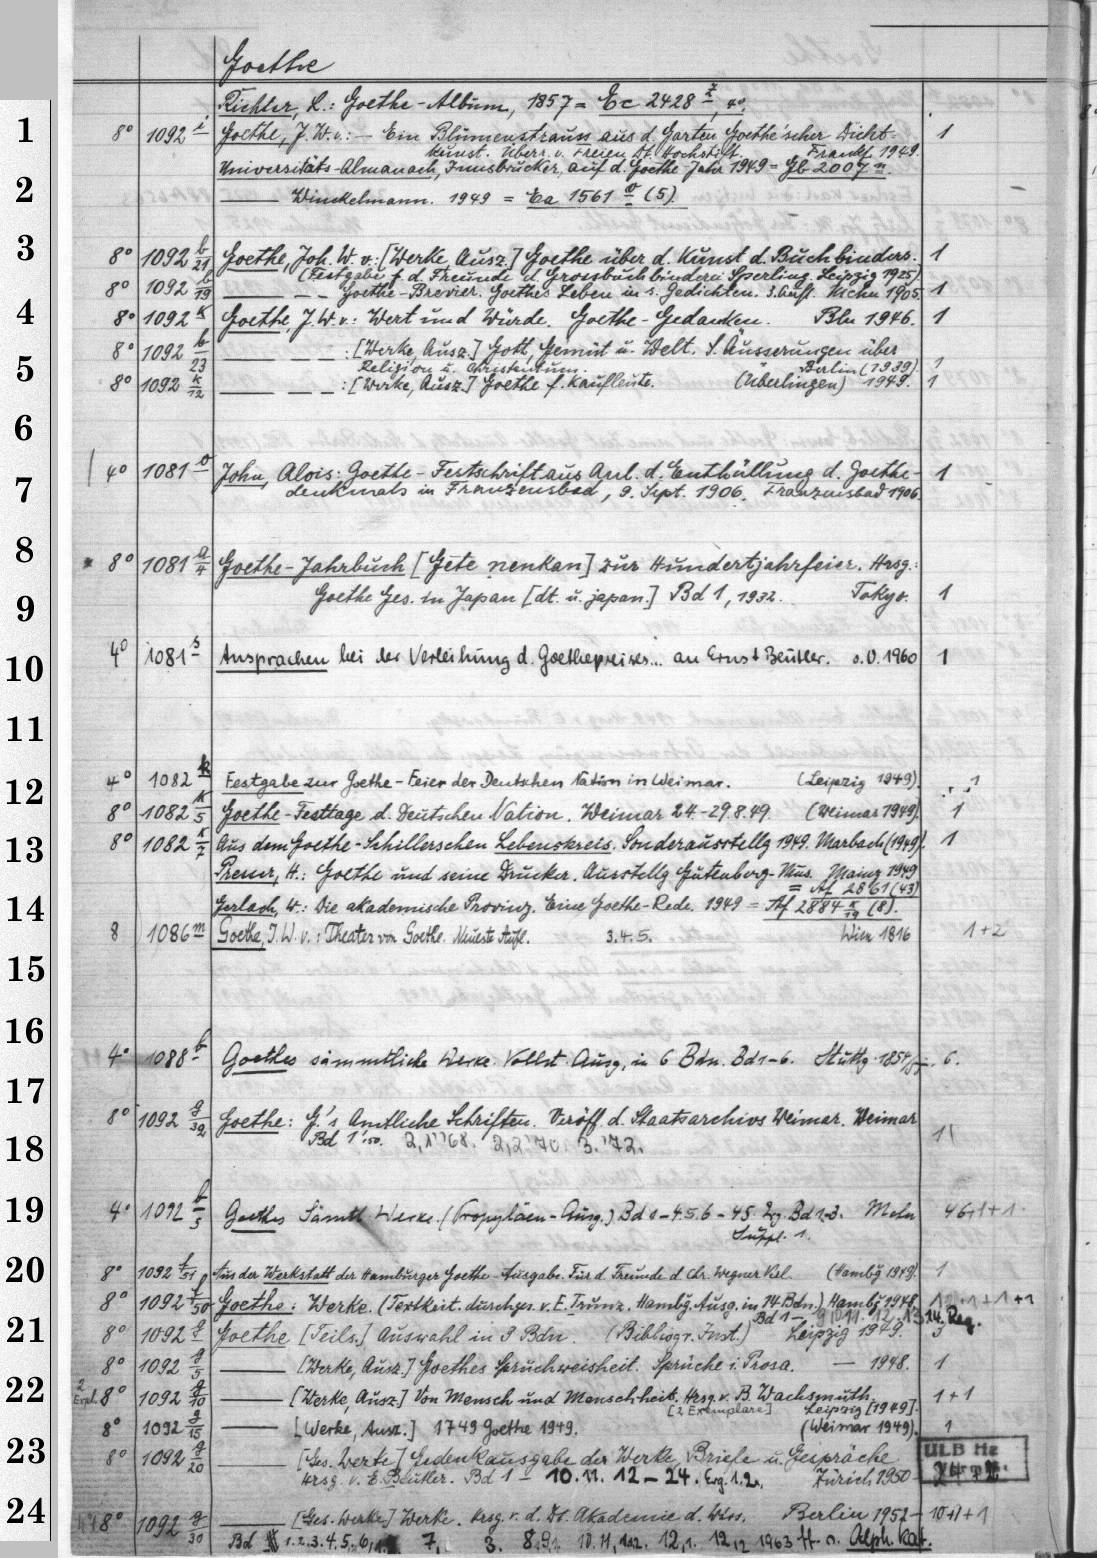 Goethe
Richter, L.: Goethe-Album, 1857 = Ec 2428 4°.
1 8° 1092 i Goethe, J. W. v.: — Ein Blumenstrauss aus d. Garten Goethe'scher Dicht- 1
kunst. Überr. v. Freien Dt. Hochstift. Frankf. 1949.
Universitäts-Almanach, Innsbrucker, auf d. Goethe Jahr 1949 = Gb 2007 n.
2 —— Winckelmann. 1949 = Ea 1561 (5).
3 8° 1092 b/21 Goethe, Joh. W. v.: [Werke, Ausz.] Goethe über d. Kunst d. Buchbinders. 1
(Festgabe f. d. Freunde d. Grossbuchbinderei Sperling. Leipzig 1925)
8° 1092 b/19 —— – – Goethe-Brevier. Goethes Leben in s. Gedichten. 3. Aufl. 1905. 1
4 8° 1092 k Goethe, J. W. v.: Wert und Würde. Goethe-Gedanken. Bln 1946. 1
8° 1092 b/23 —— – – – : [Werke, Ausz.] Gott, Gemüt u. Welt. S. Äusserungen über
5 Religion u. Christentum. Berlin (1939) 1
8° 1092 k/12 —— – – – : [Werke, Ausz.] Goethe f. Kaufleute. (Überlingen) 1949. 1
6
4° 1081 o John, Alois: Goethe-Festschrift aus Anl. d. Enthüllung d. Goethe- 1
7 denkmals in Franzensbad, 9. Sept. 1906. Franzensbad 1906.
8 8° 1081 a/4 Goethe-Jahrbuch [Gete nenkan] zur Hundertjahrfeier. Hrsg.:
9 Goethe Ges. in Japan [dt. u. japan.] Bd 1, 1932. Tokyo. 1
10 4° 1081 s Ansprachen bei der Verleihung d. Goethepreises... an Ernst Beutler. o.O. 1960 1
11
12 4° 1082 k Festgabe zur Goethe-Feier der Deutschen Nation in Weimar. (Leipzig 1949). 1
8° 1082 k/5 Goethe-Festtage d. Deutschen Nation. Weimar 24.-29.8.49. (Weimar 1949). 1
13 8° 1082 k/7 Aus dem Goethe-Schillerschen Lebenskreis. Sonderausstellg 1949. Marbach (1949). 1
H.: Goethe und seine Drucker. Ausstellg Gutenberg-Mus. Mainz 1949
= Af 2861 (43)
14 Gerlach, W.: Die akademische Provinz. Eine Goethe-Rede. 1949 = Af 2884 k/19 (8).
8 1086 m Goethe, J. W. v.: Theater von Goethe. Neueste Aufl. 3.4.5. Wien 1816 1+2
15
16 4° 1088 b Goethes sämmtliche Werke. Vollst. Ausg. in 6 Bdn. Bd 1-6. Stuttg. 6.
17
8° 1092 g/32 Goethe: G.'s Amtliche Schriften. Veröff. d. Staatsarchivs Weimar. Weimar
18 Bd 1 '50. 2,1 '68. 2,2 '70. 3. '72.
19 4° 1092 b/5 Goethes Sämtl. Werke. (Propyläen-Ausg.) Bd 1-4.5.6-45. Erg. Bd 1-3. Mchn 46+1+1
Suppl. 1.
20 8° 1092 f/51 Aus der Werkstatt der Hamburger Goethe-Ausgabe. Für d. Freunde d. Chr. Wegner Verl. (Hambg 1949). 1
8° 1092 f/50 Goethe: Werke. (Textkrit. durchges. v. E. Trunz. Hambg. Ausg. in 14 Bdn.) Hambg 1948
Bd 1- 9 10 11. 12. 13 14. Reg.
21 8° 1092 Goethe [Teils.] Auswahl in 3 Bdn. (Bibliogr. Inst.) Leipzig 1949. 3
8° 1092 g/5 —— [Werke, Ausz.] Goethes Spruchweisheit. Sprüche i. Prosa. — 1948. 1
22 2 Expl. 8° 1092 g/10 —— [Werke, Ausz.] Von Mensch und Menschheit. Hrsg. v. B. Wachsmuth. 1+1
[2 Exemplare] Leipzig [1949].
8° 1092 g/15 —— [Werke, Ausz.] 1749 Goethe 1949. (Weimar 1949). 1
23 8° 1092 g/20 —— [Ges. Werke] Gedenkausgabe der Werke, Briefe u. Gespräche ULB
Hrsg. v. E. Beutler. Bd 1 – 10. 11. 12–24. Erg. 1.2. Zürich, 1950-
24 8° 1092 g/30 —— [Ges. Werke] Werke. Hrsg. v. d. Dt. Akademie d. Wiss. Berlin 1952– 10+1+1
Bd 1.2.3.4.5.6. 7, 3. 8,9, 10. 11, 12,1. 12,2 1963 ff n. Alph. Kat.